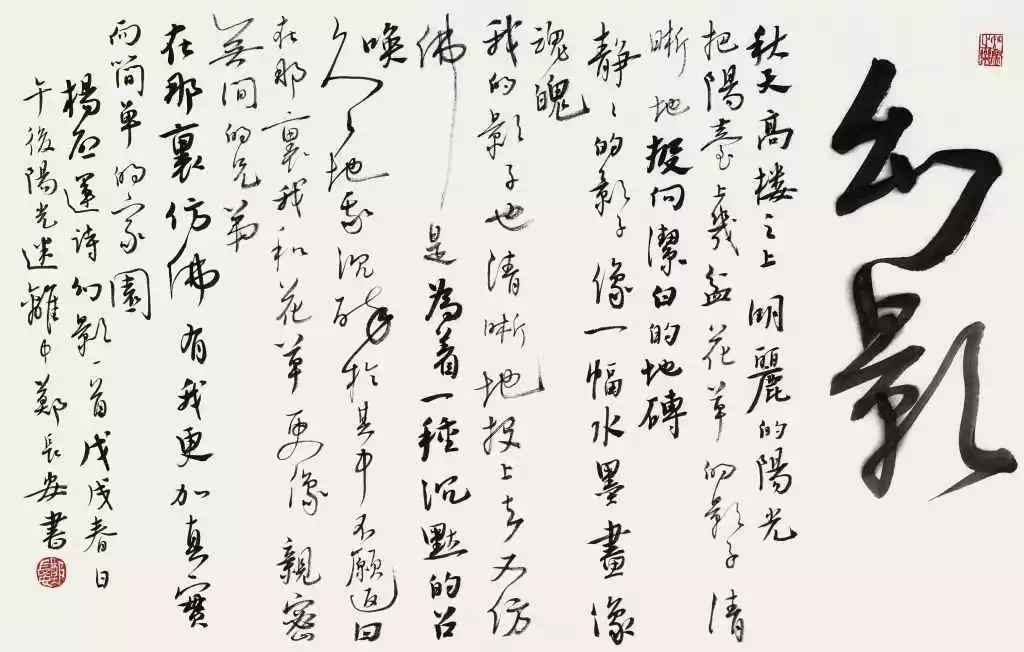 幻影
秋天高楼之上明麗的陽光
把陽臺上幾盆花草的影子清
晰地投向潔白的地磚
静静的影子像一幅水墨畫像
魂魄
我的影子也清晰地投上去又仿
佛是為着一種沉默的召
唤
久久地我沉醉於其中不願返回
在那裏我和花草更像親密
無間的兄弟
在那裏仿佛有我更加真實
而简單的家園
楊運詩幻影一首戊戌春日
午後陽光迷離中鄭長安書